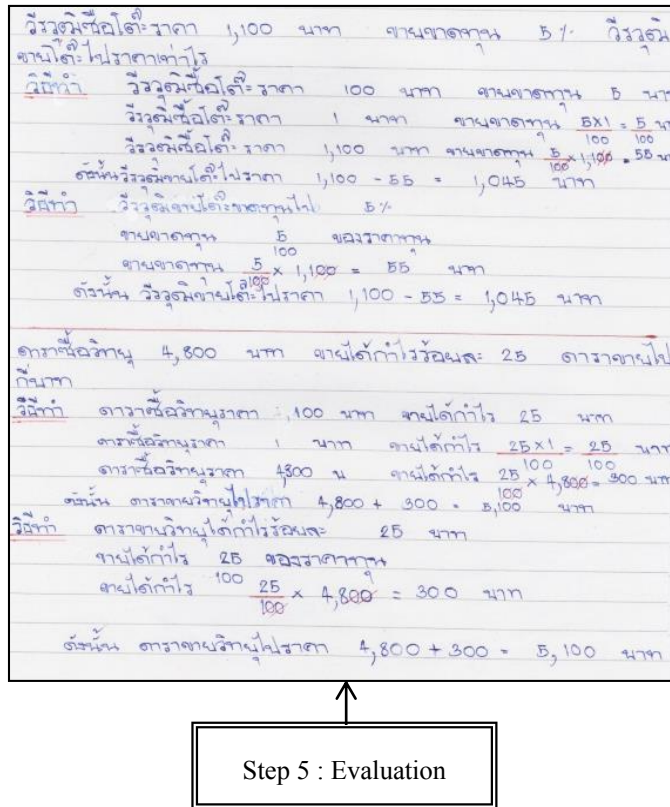 วีรวุฒิซื้อโต๊ะราคา 1,100 บาท ขายขาดทุน 5% วีรวุฒิ
ขายโต๊ะไปราคาเท่าไร
วิธีทำ วีรวุฒิซื้อโต๊ะราคา 100 บาท ขายขาดทุน 5 บาท
วีรวุฒิซื้อโต๊ะราคา 1 บาท ขายขาดทุน 5×1/100 = 5/100 บ
วีรวุฒิซื้อโต๊ะราคา 1,100 บาท ขายขาดทุน 5/100 × 1,100 = 55 บาท
ดังนั้นวีรวุฒิขายโต๊ะไปราคา 1,100 - 55 = 1,045 บาท
วิธีทำ วีรวุฒิขายโต๊ะขาดทุนไป 5%
ขายขาดทุน 5/100 ของราคาทุน
ขายขาดทุน 5/100 × 1,100 = 55 บาท
ดังนั้น วีรวุฒิขายโต๊ะไปราคา 1,100 - 55 = 1,045 บาท
ดาราซื้อวิทยุ 4,800 บาท ขายได้กำไรร้อยละ 25 ดาราขายไป
กี่บาท
วิธีทำ ดาราซื้อวิทยุราคา 100 บาท ขายได้กำไร 25 บาท
ดาราซื้อวิทยุราคา 1 บาท ขายได้กำไร 25×1/100 = 25/100 บาท
ดาราซื้อวิทยุราคา 4,800 บ ขายได้กำไร 25/100 × 4,800 = 300 บาท
ดังนั้น ดาราขายวิทยุไปราคา 4,800 + 300 = 5,100 บาท
วิธีทำ ดาราขายวิทยุได้กำไรร้อยละ 25 บาท
ขายได้กำไร 25/100 ของราคาทุน
ขายได้กำไร 25/100 × 4,800 = 300 บาท
ดังนั้น ดาราขายวิทยุไปราคา 4,800 + 300 = 5,100 บาท
Step 5 : Evaluation